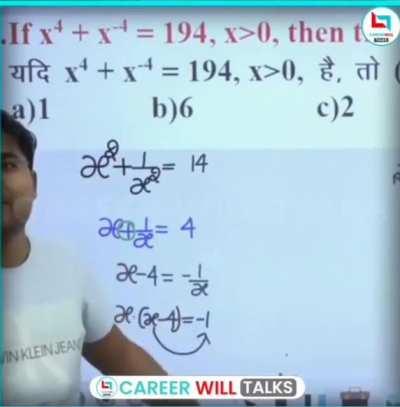 .If x⁴ + x⁻⁴ = 194, x>0, then t
यदि x⁴ + x⁻⁴ = 194, x>0, है, तो (
a)1 b)6 c)2
x² + 1/x² = 14
x + 1/x = 4
x-4 = -1/x
x·(x-4) = -1
VIN KLEIN JEAN
CAREER WILL TALKS